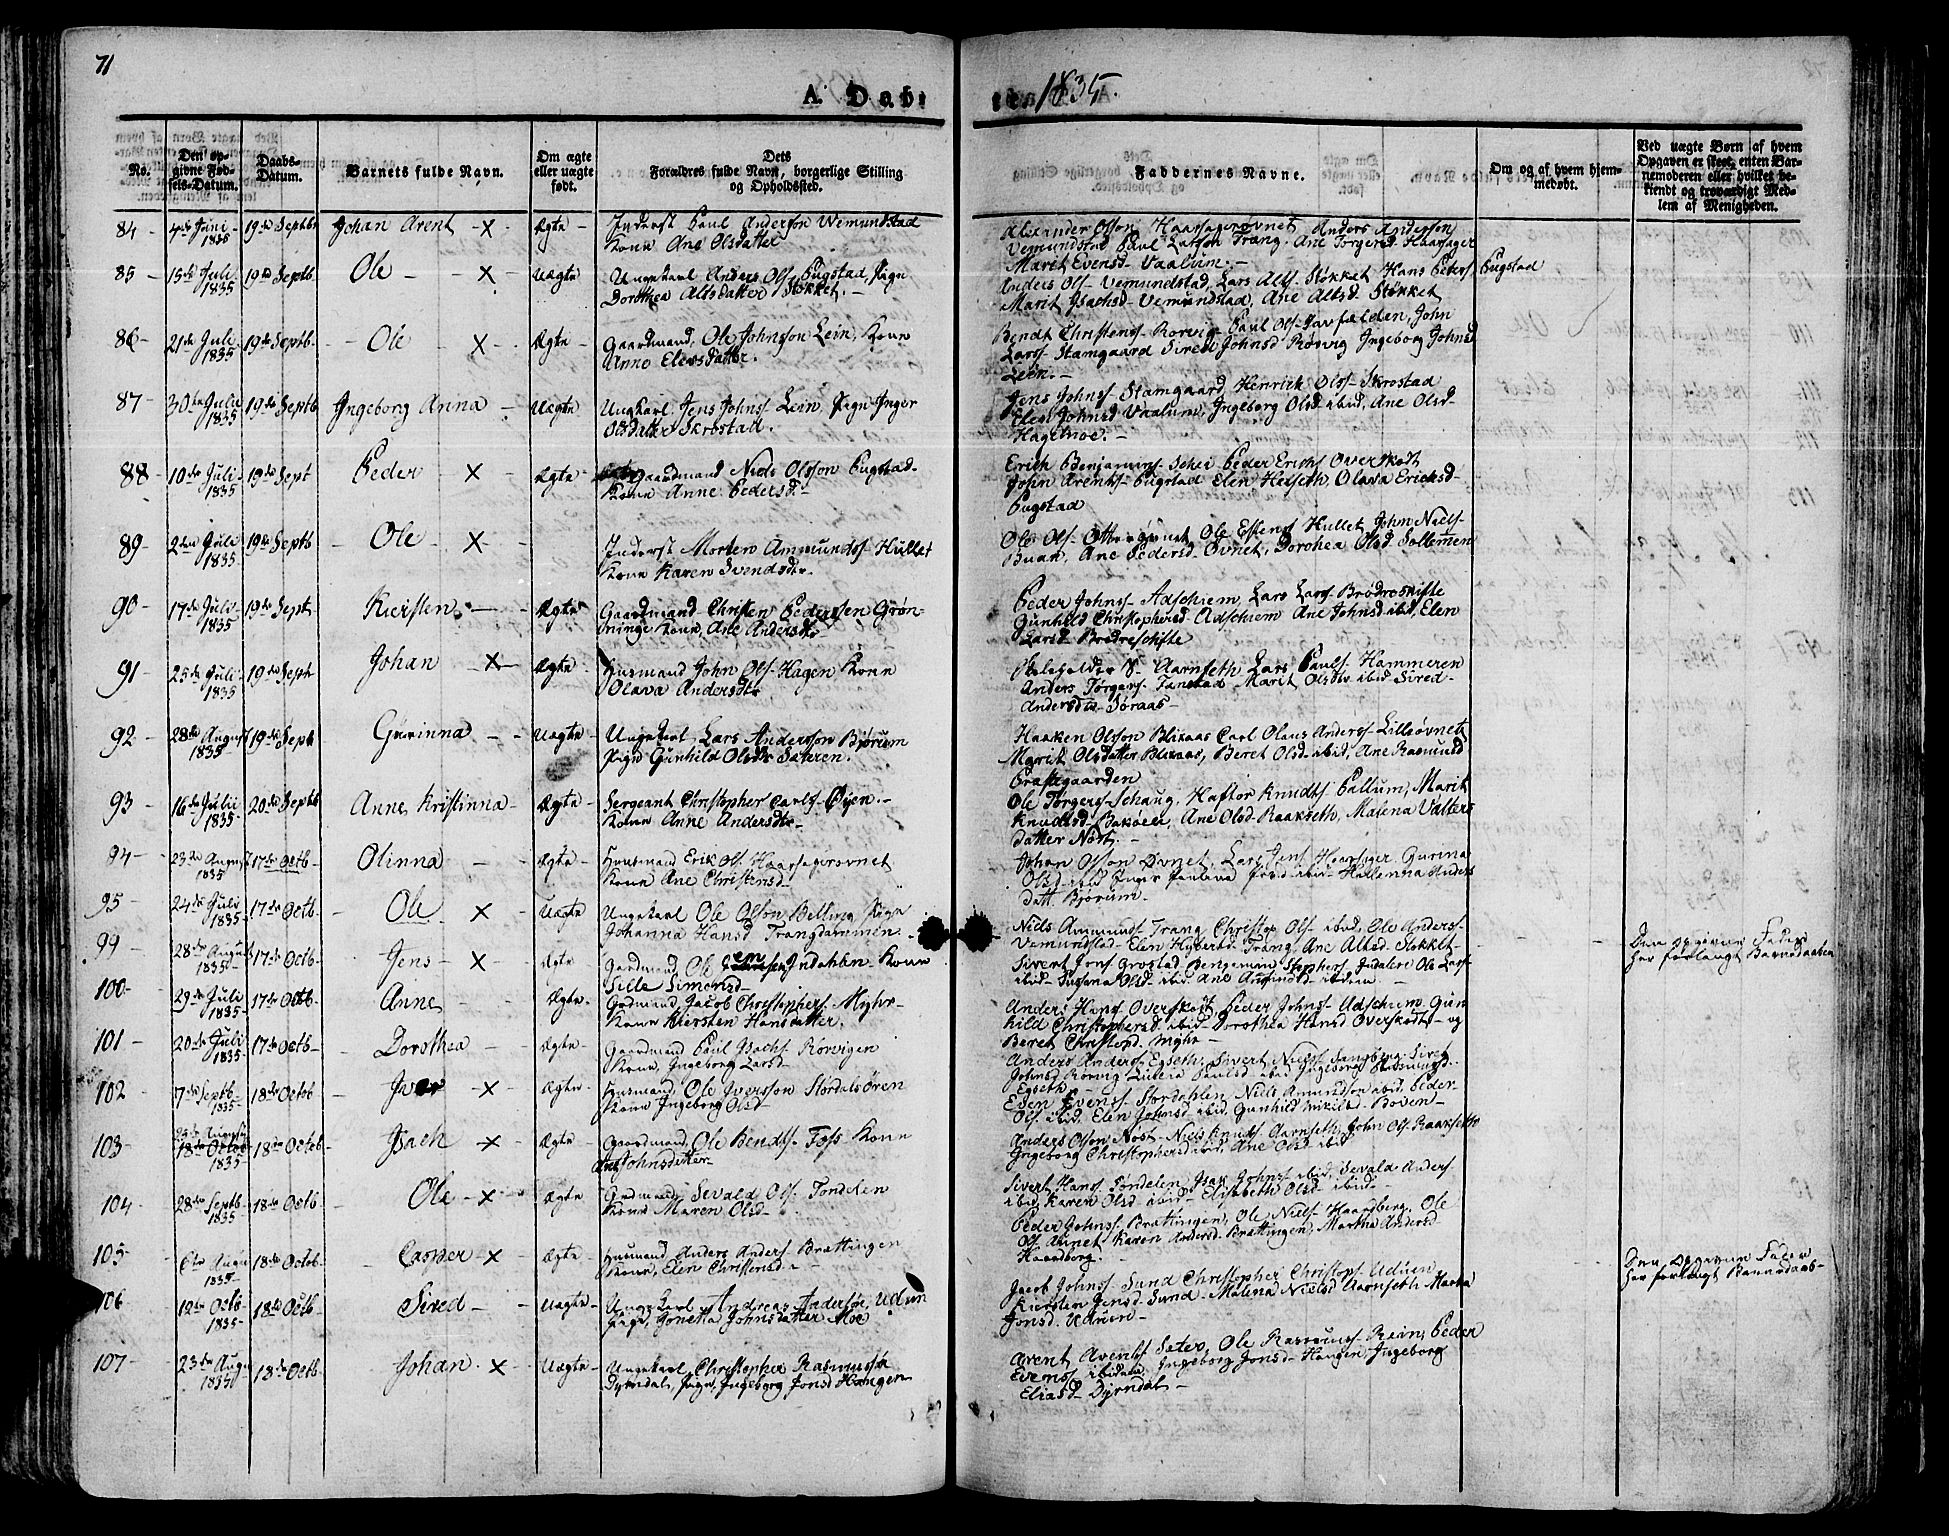 71
A. Dab:
te. 1835.
No.
Den op-
givne Fød-
sels-Datum.
Daabs-
Datum.
Barnets fulde Navn.
Om ægte
eller uægte
født.
Dets
Forældres fulde Navn, borgerlige Stilling
og Opholdssted.
Faddernes Navne.
Om og af hvem hjem-
medøbt.
Ved uægte Børn af hvem
Opgaven er skeet, enten Bar-
nemoderen eller hvilket be-
kiendt og troværdigt Med-
lem af Menigheden.
84 4de Juni 1835 19de Septbr Johan Arent X Ægte Inderst Paul Andersøn Wemundstad
Kone Ane Olsdatter
Alexander Olsøn Haarsagerøvnet Anders Andersøn
Vemundstad Paul Larsøn Trang. Ane Torgersd Haarsager
Marit Evensd Vaalum.
85 15de Juli 1835 19de Septb Ole X Uægte Ungekarl Anders Ols. Fugstad, Pige
Dorthea Altsdatter Støkket.
Anders Ols- Vemundstad, Lars Alts- Støkket Hans Peders Fugstad
Marit Isachsd- Vemundstad, Ane Altsd. Støkket
86 21de Juli 1835 19de Septb. Ole X Ægte Gaardmand, Ole Johnssøn Lein, Kone
Anne Elensdatter.
Bendt Christens- Rørvig Paul Ols- John
Larss- Stamgaard Sired Johnsd Rørvig Ingeborg Johnsd
Lein.
87 30te Juli 1835 19de Septb Ingeborg Anna Uægte Ungkarl Jens Johns- Lein, Pige Inger
Olsdatter Skrøstad.
Jens Johns- Stamgaard Henrich Ols- Skrostad
Elen Johnsd Vaalum, Ingeborg Olsd- ibid, Ane Olsd-
Hagemoe.
88 10de Juli 1835 19de Sept Peder X Ægte Gaardmand Niels Olssøn Fugstad-
Kone Anne Pedersd.
Erich Benjamins- Schei Peder Erichs Overskodt
John Arents- Fugstad Elen Helseth, Olava Ericksd-
Fugstad
89 2den Juli 1835 19de Septb Ole X Ægte Inderst Morten Ammunds- Hullet
Kone Karen Svendsdtr.
Ols Ols- Ole Estens Hullet John Niels-
Buan, Ane Pedersd. Ovnet, Dorthea Olsd Sollemen
90 17de Juli 1835 19de Sept Kiersten Ægte Gaardmand Christen Pedersen Grøn-
ninge Kone, Ane Andersdtr
Peder Johns- Adschiem, Lars Lars- Brødreskifte
Gunhild Christophersd- Adschiem Ane Johnsd ibid, Elen
Larsd- Brødreschifte
91 25de Juli 1835 19de Septb Johan X Ægte Husmand John Ols- Hagen Kone
Olava Andersdtr
Skoleholder Aarnseth Lars Pauls- Hammeren
Anders Tørgers- Tanstad Marit Olsdtr ibid Sired
Andersdtr- Søraas
92 28de August 1835 19de Sept Gurinna Uægte Ungekarl Lars Anderssøn Bjørum
Pige Gunhild Olsdtr Sæteren.
Haaken Olsøn Blixaas Carl Olaus Anders- Lilleøvnet
Marit Olsdatter Blixaas, Beret Olsd- ibid, Ane Rasmusd
Præstegaarden
93 16de Julii 1835 20de Septb Anne Kristinna Ægte Sergeant Christopher Carls- Øyen.
Kone Anne Andersdtr
Ole Tørgers- Schaug, Haftor Knudts- Fallum, Marit
Knudtsd- Bakøen, Ane Olsd- Raakseth, Malena Valters
datter Nøst.
94 23de August 1835 17de Octb Olinna Ægte Husmand Erik Ols- Haarsagerøvnet
Kone Ane Christensd
Johan Olsøn Øvnet, Lars Jens- Haarsager, Gurina
Olsd- ibid Inger ibid Anders
datt. Bjørum.
95 24de Juli 1835 17de Octb. Ole X Uægte Ungekarl Ole Olsøn Belling Pige
Johanna Hansd Trangdammen.
Niels Ammunds- Trang, Christop Ols- ibid, Ole Anders-
Vemundstad- Elen Trang, Ane Altsd- Støkket
Den opgivne Fader
har forlangt Barnedaaben
99 28de August 1835 17de Octb- Jens X Ægte Gaardmand, Ole Indahlen Kone
Sille Simonsd-
Sivert Jons- Grostad Benjemin Indalen Ole Lars-
ibid- Susana Olsd- ibid. Ane ibidem
100 29de Juli 1835 17de Octb Anne Ægte Gaardmand Jacob Christophers- Myhr-
Kone Kiersten Hansdatter.
Anders Hans- Overskodt, Peder Johns- Adschiem Gun
hild Christophersd- ibid- Dorothea Hansd Overskodt- og
Beret Christopd. Myhr
101 20de Juli 1835 17de Octb- Dorothea Ægte Gaardmand Paul Isachs- Rørvigen
Kone, Ingeborg Larsd-
Anders Anders- Egseth, Sivert Niels- Sired
Johnsd Rørvig Paulsd- ibid Ingeborg
Egseth
102 7de Septb- 1835 18de Octob Iver X Ægte Husmand, Ole Iverssøn Stordalsøren
Kone Ingeborg Olsd
Esten Evens- Stordahlen, Niels Amundsøn ibid, Peder
Ols- ibid, Elen Johnsd- ibid, Gunhild Boven
103 25de August 18de Octob 1835 18de Octob Isach X Ægte Gaardmand, Ole Bendts- Foss Kone
Ane Johnsdatter
Anders Olsøn Nøst- Niels Knuds- Aarnseth, John Ols- Raakseth
Ingeborg Christophersd ibid, Ane Olsd ibid
104 28de Septb 1835 18de Octb Ole X Ægte Gaardmand, Sevald Ols- Tøndelen
Kone Maren Olsd
Sivert Hans- Tøndelen, Isax Johns- ibid, Sevald Anders-
ibid, Karen Olsd ibid- Elisabeth Olsd- ibid-
105 6te Augu 1835 18de Octob. Casper X Ægte Husmand, Anders Anders- Brattingen
Kone, Elen Christensd
Peder Johns- Brattingen, Ole Niels- Haardberg. Ole
Ols- Aunet Karen Andersd- Brattingen, Martha Andersd
Haardberg.
106 12te Octb 1835 18de Octb Sired Uægte Ungekarl Andreas Andersøn, Uduen
Pige, Jonetta Johnsdatter Moe
Jacob Johns- Sund Christopher Christop- Uduen
Kiersten Jensd- Sund- Malena Nielsd Aarnseth Marta
Jonsd. Uduen
Den opgivne Fader
har forlangt Barnedaab-
107 23de Augu 1835 18de Octb Johan X Uægte Ungekarl, Christopher Rasmussøn
Dyrndal, Pige, Ingeborg Jonsd Haugen
Arent Arents- Sæter, Ole Rasmus- Rein, Peder
Evens- ibidem, Ingeborg Jonsd- Haugen, Ingeborg
Eliasd- Dyrndal